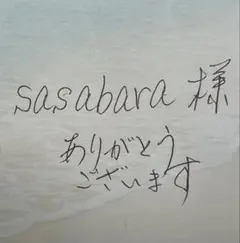 sasabara 様
ありがとう
ございます